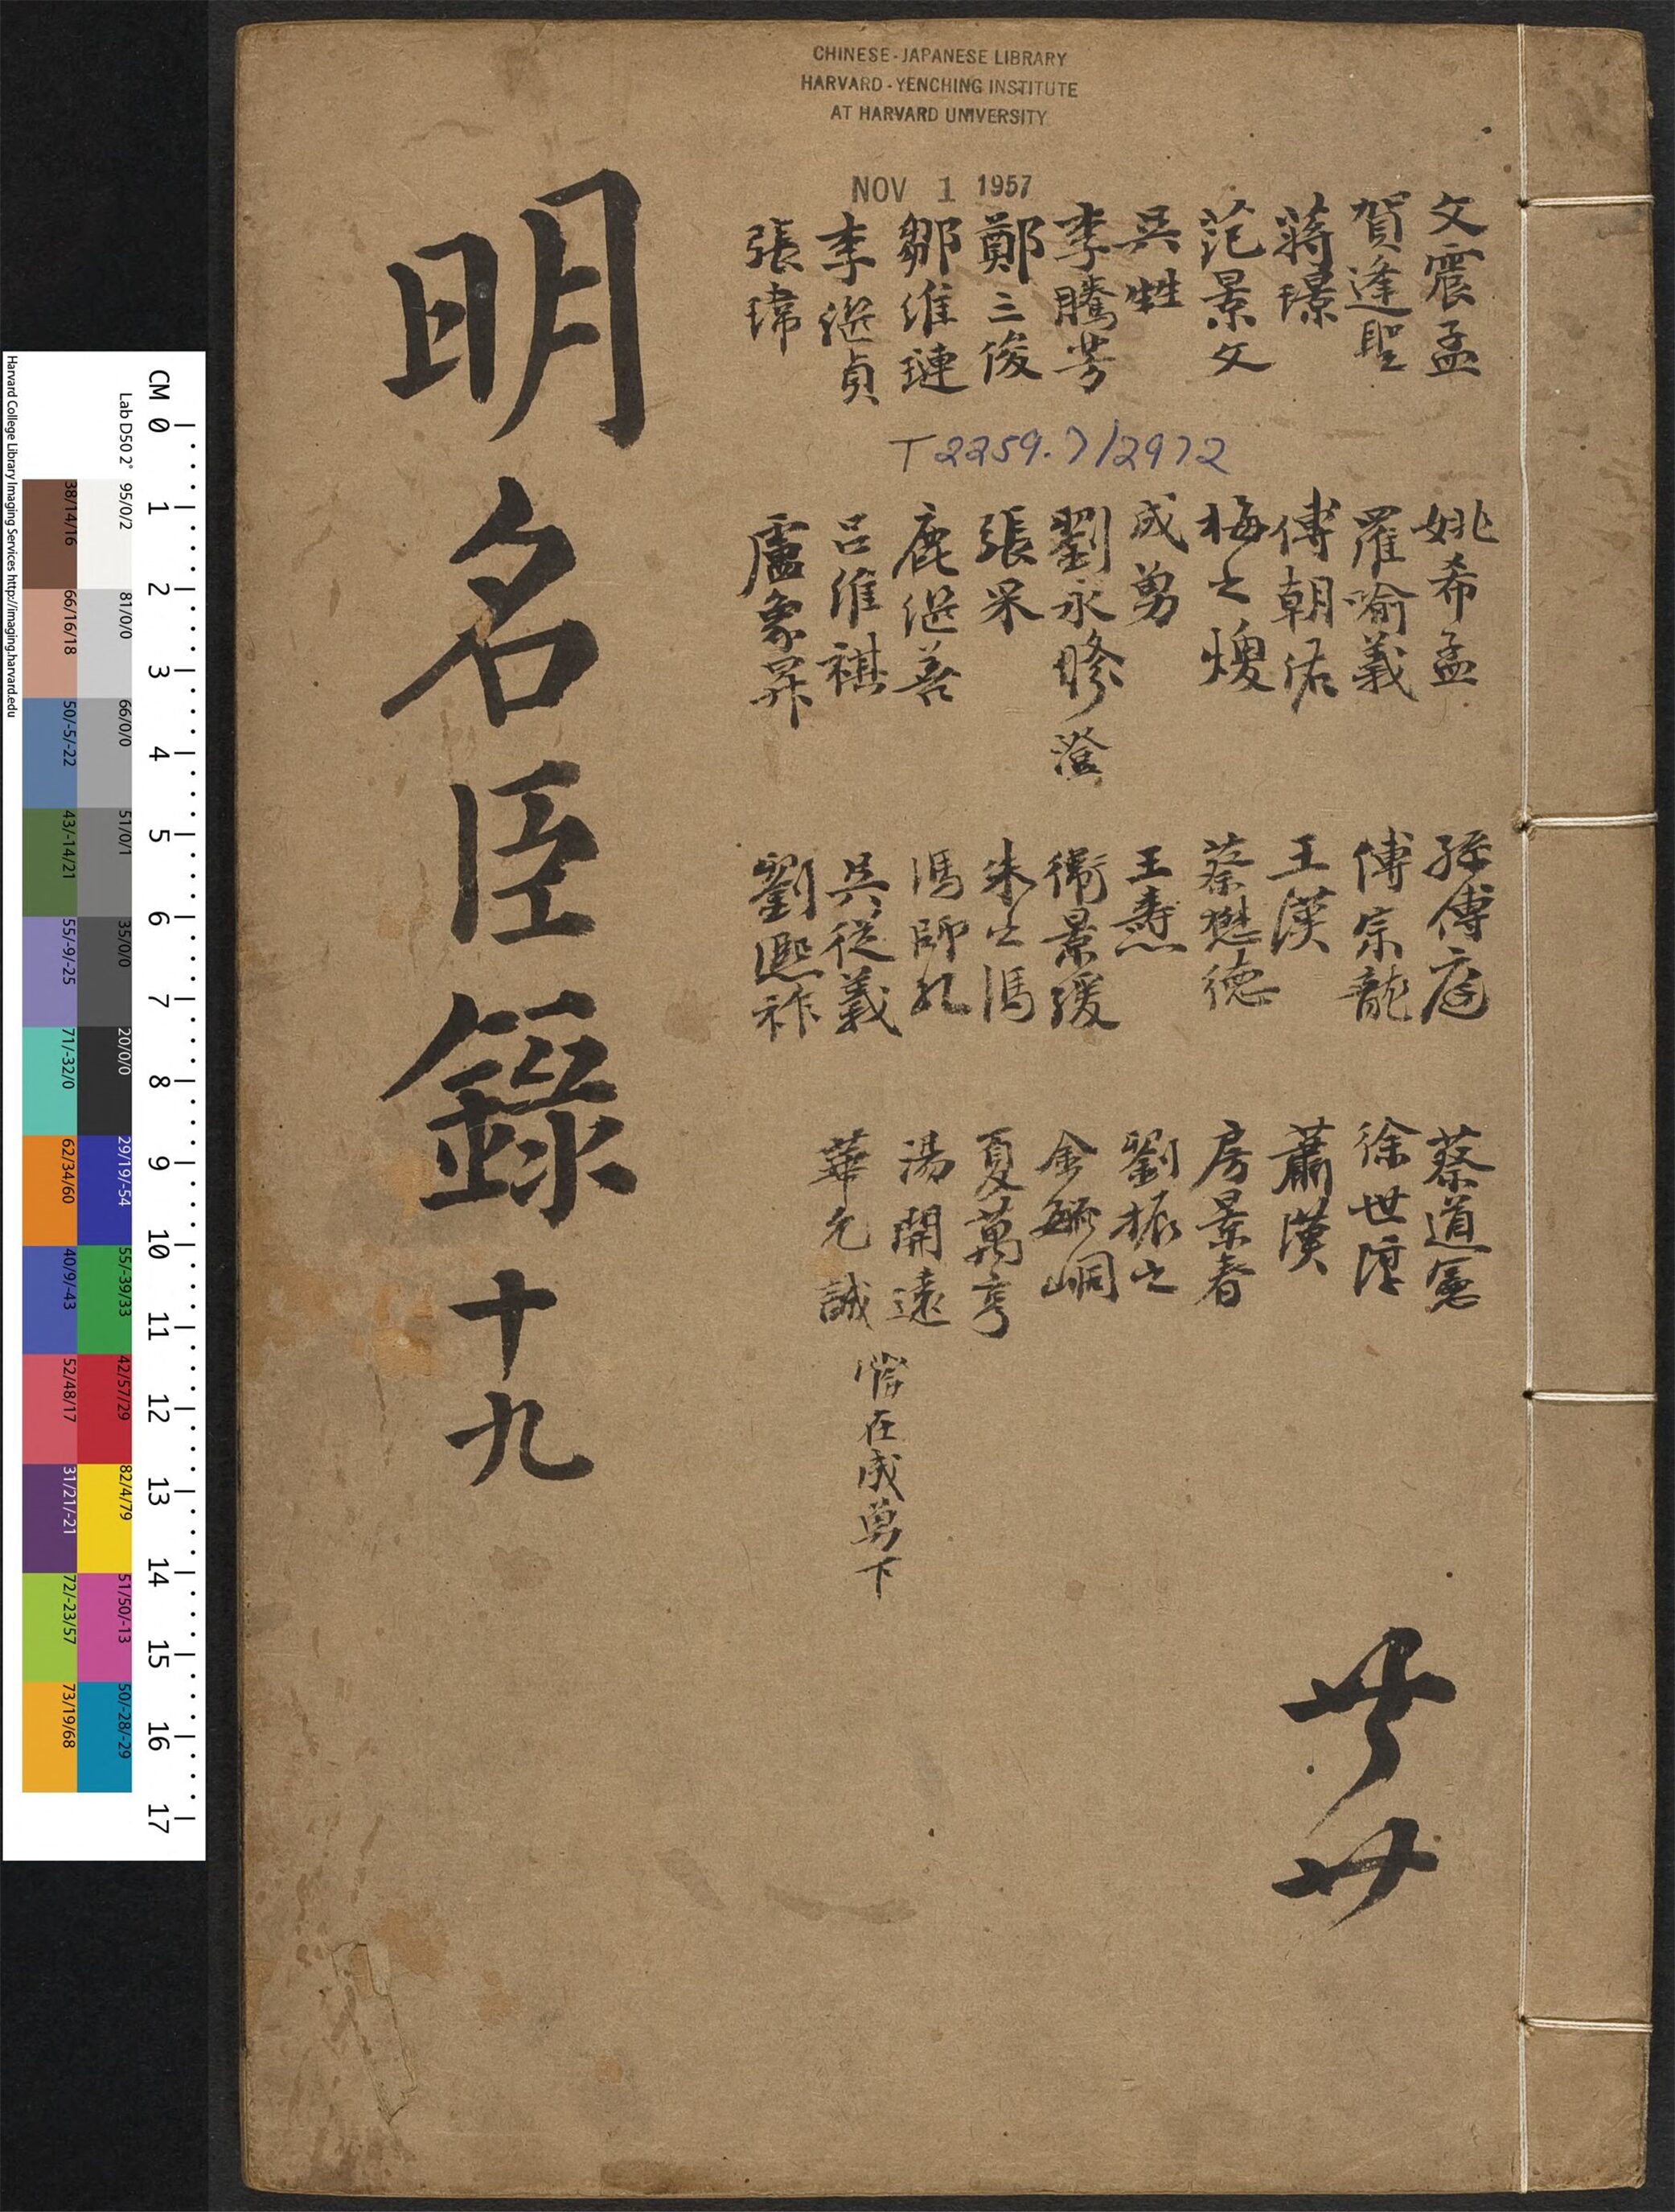 CHINESE-JAPANESE LIBRARY
HARVARD-YENCHING INSTITUTE
AT HARVARD UNIVERSITY
NOV 1 1957
文震孟
賀逢聖
蔣璟
范景文
吳甡
李騰芳
鄭三俊
鄒維璉
李繼貞
張瑋
T2259.7/2972
姚希孟
羅喻義
傅朝佑
梅之熉
成勇
劉永澄
張采
鹿繼善
呂維祺
盧象昇
孫傅庭
傅宗龍
王漢
蔡懋德
王燾
衛景瑗
朱之馮
馮師孔
吳從義
劉熙祚
蔡道憲
徐世淳
蕭漢
房景春
劉振之
金毓峒
夏萬亨
湯開遠
華允誠
當在成勇下
明名臣錄十九
廿
CM 0 1 2 3 4 5 6 7 8 9 10 11 12 13 14 15 16 17
Lab D50 2° 95/0/2 81/0/0 66/0/0 51/0/1 35/0/0 20/0/0 29/19/-54 55/-39/33 42/57/29 82/4/79 51/50/-13 50/-28/-29
38/14/16 66/16/18 50/-5/-22 43/-14/21 55/-9/-25 71/-32/0 62/34/60 40/9/-43 52/48/17 31/21/-21 72/-23/57 73/19/68
Harvard College Library Imaging Services http://imaging.harvard.edu